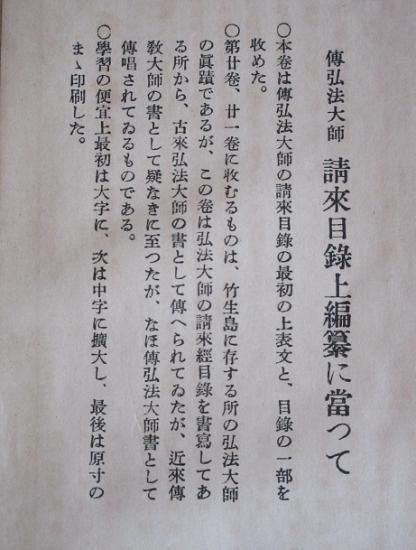 傳弘法大師 請來目錄上編纂に當つて
〇本卷は傳弘法大師の請來目錄の最初の上表文と、目錄の一部を
收めた。
〇第廿卷、廿一卷に收むるものは、竹生島に存する所の弘法大師
の眞蹟であるが、この卷は弘法大師の請來經目錄を書寫してあ
る所から、古來弘法大師の書として傳へられてゐたが、近來傳
敎大師の書として疑なきに至つたが、なほ傳弘法大師書として
傳唱されてゐるものである。
〇學習の便宜上最初は大字に、次は中字に擴大し、最後は原寸の
まゝ印刷した。